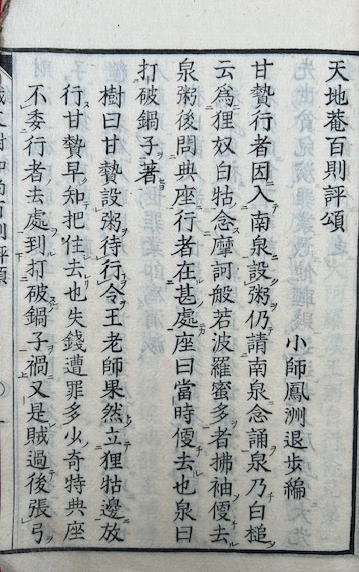 天地菴百則評頌
小師鳳洲退歩編
甘贄行者因入南泉設粥仍請南泉念誦泉乃白槌
云爲狸奴白牯念摩訶般若波羅蜜多者拂袖便去
泉粥後問典座行者在甚處座曰當時便去也泉曰
打破鍋子著
樹曰甘贄設粥待行令王老師果然立狸牯邊放
行甘贄早知把住去也失錢遭罪多少奇特典座
不委行者去處到打破鍋子禍又是賊過後張弓